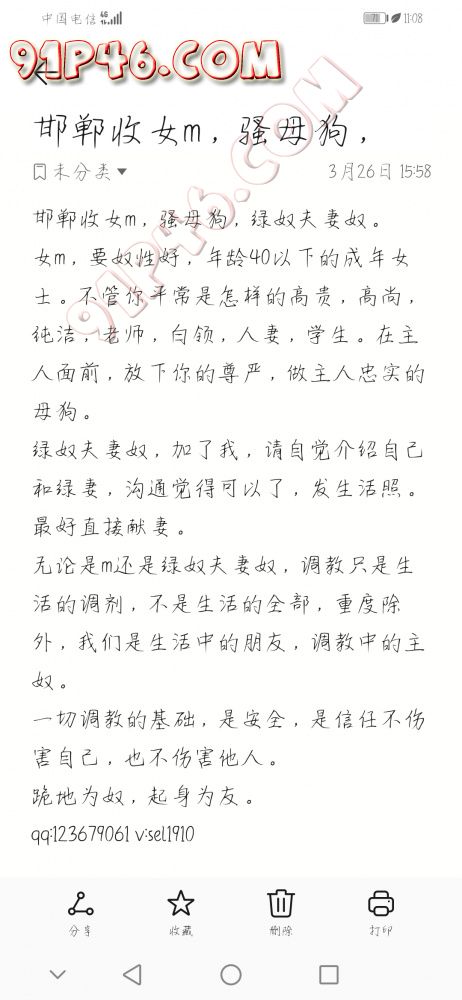 中国电信 4G
70 11:08
91P46.COM
邯郸收女m，骚母狗，
未分类
3月26日 15:58
91P46.COM
邯郸收女m，骚母狗，绿奴夫妻奴。
女m，要奴性好，年龄40以下的成年女
士。不管你平常是怎样的高贵，高尚，
纯洁，老师，白领，人妻，学生。在主
人面前，放下你的尊严，做主人忠实的
母狗。
绿奴夫妻奴，加了我，请自觉介绍自己
和绿妻，沟通觉得可以了，发生活照。
最好直接献妻。
无论是m还是绿奴夫妻奴，调教只是生
活的调剂，不是生活的全部，重度除
外，我们是生活中的朋友，调教中的主
奴。
一切调教的基础，是安全，是信任不伤
害自己，也不伤害他人。
跪地为奴，起身为友。
qq:123679061 v:sel1910
分享
收藏
删除
打印